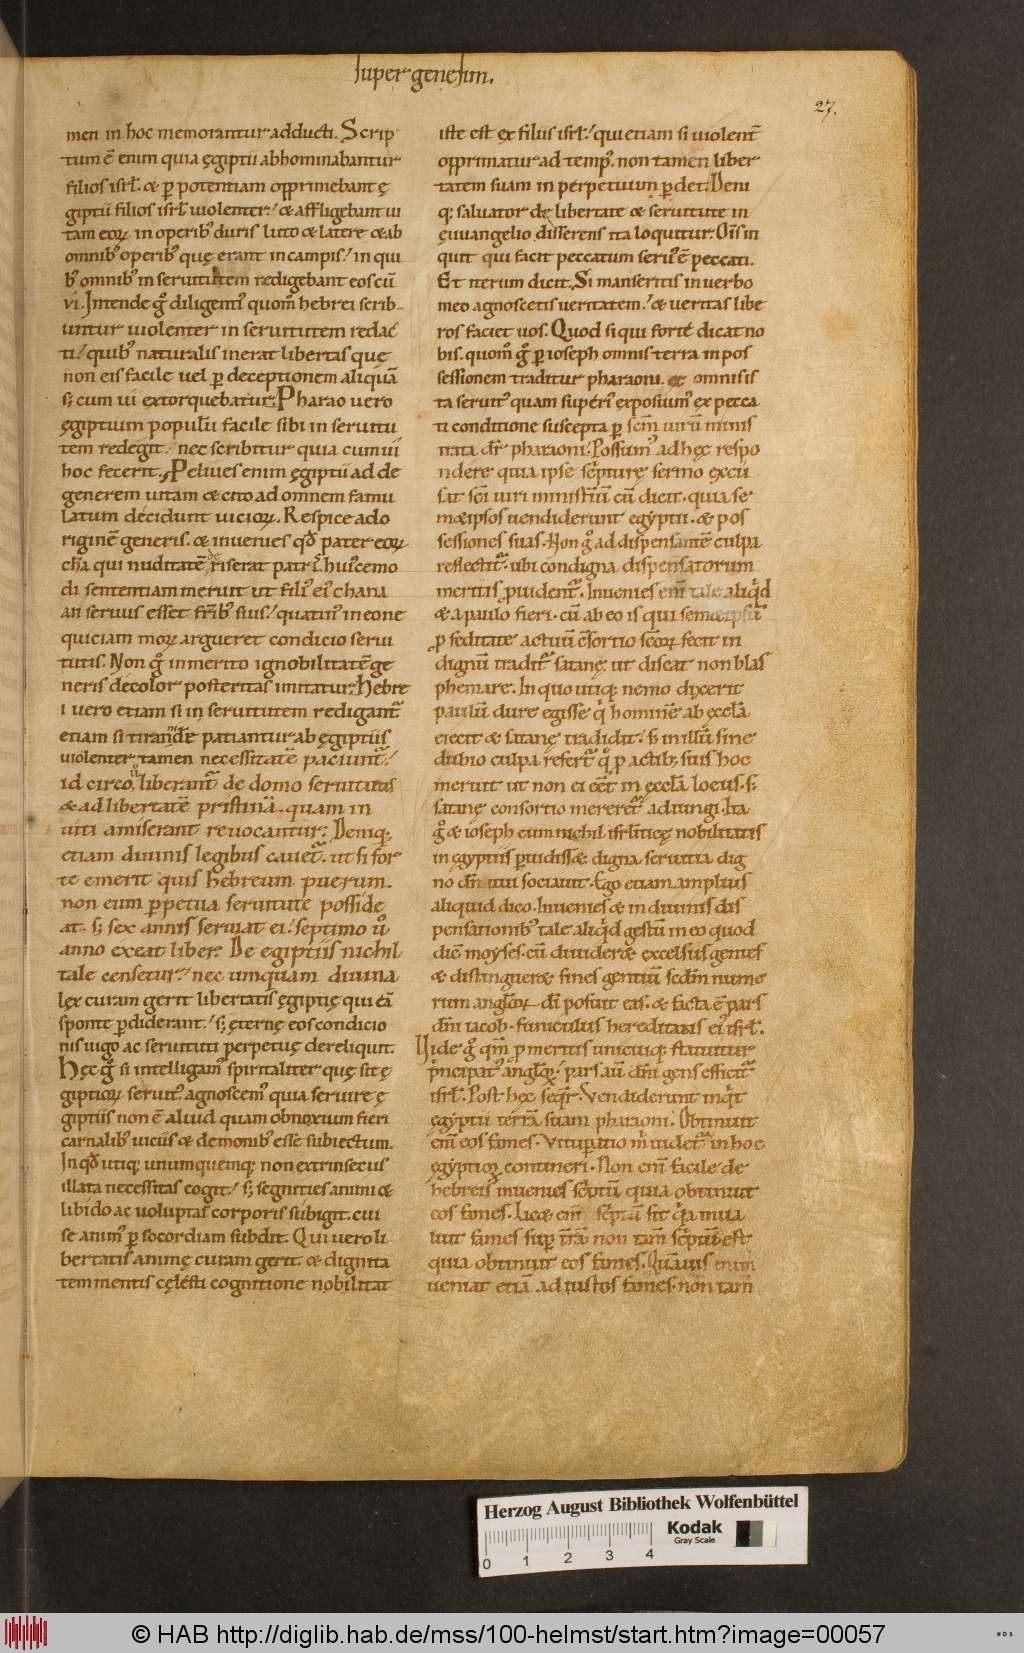 super genesim.
27.
men in hoc memorantur adducti. Scrip
tum ē enim quia ęgiptii abhominabantur
filios isrł. & ꝑ potentiam opprimebant ę
giptii filios isrł uiolenter. & affligebant ui
tam eoꝝ in operibꝰ duris luto & latere & ab
omnibꝰ operibꝰ quę erant in campis. in qui
bꝰ omnibꝰ in seruitutem redigebant eos cū
ui. Intende gͦ diligentiꝰ quom̄ hebrei scrib-
untur uiolenter in seruitutem redac
ti. quibꝰ naturalis inerat libertas quę
non eis facile uel ꝑ deceptionem aliquā
sꝫ cum ui extorquebatur. Pharao uero
ęgiptium popułū facile sibi in seruitu
tem redegit. nec scribitur quia cum ui
hoc fecerit. Procliues enim ęgiptii ad de
generem uitam & cito ad omnem famu
latum decidunt uicioꝝ. Respice ad o
riginē generis. & inuenies qđ pater eoꝝ
chā qui nuditatē riserat patrͥ. huiꝰcemo
di sententiam meruit ut filiꝰ eiꝰ chana
an seruus esset fr̄ibꝰ suis. quatinꝰ in eone
quiciam moꝝ argueret condicio serui
tutis. Non gͦ inmerito ignobilitatē ge
neris decolor posteritas imitatur. Hebre
i uero etiam si in seruitutem redigant᷑
etiam si tirannidē patiantur ab ęgiptiis
uiolenter tamen necessitate paciunt᷑.
id circo liberant᷑ de domo seruitutis
& ad libertatē pristinā. quam in
uiti amiserant reuocantur. Deniq;
etiam diuinis legibus cauet᷑. ut si for
te emerit quis hebreum puerum.
non eum ꝑpetua seruitute posside
at. sꝫ sex annis seruiat ei. septimo uͦ
anno exeat liber. De egiptiis nichil
tale censetur. nec umquam diuina
lex curam gerit libertatis ęgiptię qui eā
sponte ꝑdiderant. sꝫ ęternę eos condicio
nis iugo ac seruituti perpetuę dereliquit.
Hęc gͦ si intelligamꝰ spiritaliter quę sit ę
giptioꝝ seruitꝰ agnoscemꝰ quia seruire ę
giptiis non ē aliud quam obnoxium fieri
carnalibꝰ uiciis & demonibꝰ esse subiectum.
In qđ utiq; unumquemq; non extrinsecus
illata necessitas cogit. sꝫ segnities animi &
libido ac uoluptas corporis subigit. cui
se animꝰ ꝑ socordiam subdit. Qui uero li
bertatis animę curam gerit. & dignita
tem mentis cęlesti cognitione nobilitat
iste est ex filiis isrł. qui etiam si uiolent̄
opprimatur ad tempꝰ. non tamen liber
tatem suam in perpetuum ꝑdet. Deni
q; saluator de libertate & seruitute in
ęuuangelio disserens ita loquitur. Om̄is in
quit qui facit peccatum seruꝰ ē peccati.
Et iterum dicit. Si manseritis in uerbo
meo agnoscetis ueritatem. & ueritas libe
ros faciet uos. Quod si qui forte dicat no
bis. quom̄ gͦ ꝑ ioseph omnis terra in pos
sessionem traditur pharaoni. & omnis is
ta seruitꝰ quam superiꝰ exposuimꝰ ex pecca
ti conditione suscepta ꝑ sc̄m uirū minis
trata dr̄ pharaoni. Possumꝰ ad hęc respo
ndere quia ipse scͥpturę sermo excu
sat sc̄i uiri ministeriū cū dicit. quia se
m&ipsos uendiderunt egyptii. & pos
sessiones suas. Non gͦ ad dispensantē culpa
reflectit᷑. ubi condigna dispensatorum
meritis ꝓuident᷑. Inuenies eni̅ tale aliqͥd
& a paulo fieri. cū ab eo is qui sem&ipsū
ꝓ feditate actuū c̄sortio sc̄oꝝ fecit in
dignū tradit᷑ satanę. ut discat non blas
phemare. In quo utiq; nemo dixerit
paulū dure egisse qͥ hominē ab ęccł̄a
eiecit & satanę tradidit. sꝫ in illū sine
dubio culpa refert᷑ qͥ ꝓ actibꝰ suis hoc
meruit ut non ei eēt in ęccł̄a locus. sꝫ
satanę consortio mereret᷑ adiungi. Ita
gͦ & ioseph cum nichil isrł̄iticę nobilitatis
in ęgyptiis ꝑuidiss&. digna seruitia dig
no dn̄i iuui sociauit. Ego etiam amplius
aliquid dico. Inuenies & in diuinis dis
pensationibꝰ tale aliqͥd gestū in eo quod
dic̄ moyses. cū diuider& excelsus gentes
& distinguer& fines gentiū scd̄m nume
rum angłoꝝ dī posuit eas. & facta ē pars
dn̄i iacob. funiculus hereditatis eiꝰ isrł.
Vide gͦ qm̄ ꝓ meritis unicuiq; statuitur
pͥncipatꝰ angłoꝝ. pars aū dn̄i gens efficit᷑
isrł. Post hęc seqͥr. Vendiderunt inqͥt
egyptii terrā suam pharaoni. Obtinuit
eni̅ eos fames. Vituperatio m̄ uidet᷑ in hoc
ęgyptioꝝ contineri. Non eni̅ facile de
hebreis inuenies scͥptū quia obtinuit
eos fames. Lic& eni̅ scͥptū sit qͥa inua
luit fames suꝑ t̄rā non tam̄ scͥptū est
quia obtinuit eos fames. Quāuis enim
ueniat etiā ad iustos fames. non tam̄
Herzog August Bibliothek Wolfenbüttel
Kodak
Gray Scale
0 1 2 3 4
© HAB http://diglib.hab.de/mss/100-helmst/start.htm?image=00057